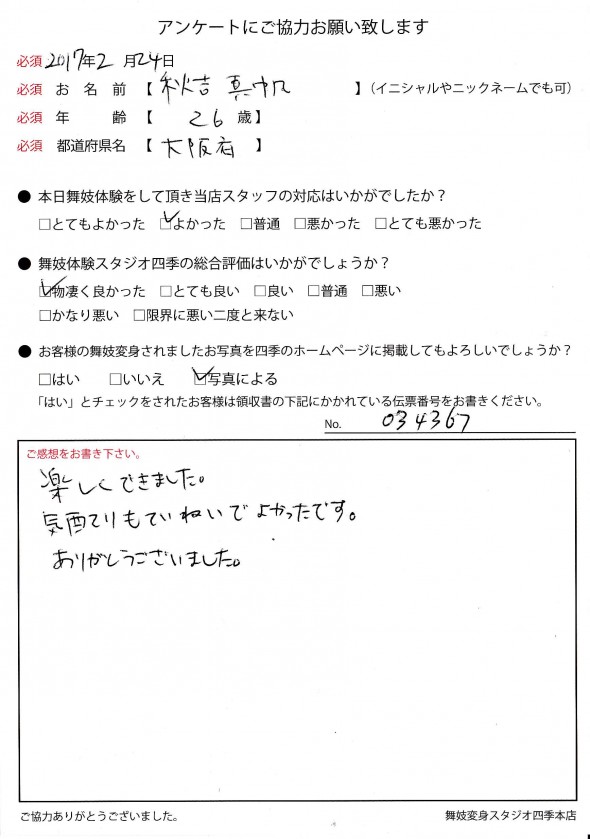 アンケートにご協力お願い致します
必須 2017年2月24日
必須 お名前【 秋吉 真帆 】（イニシャルやニックネームでも可）
必須 年齢【 26 歳】
必須 都道府県名【 大阪府 】
● 本日舞妓体験をして頂き当店スタッフの対応はいかがでしたか？
□とてもよかった ☑よかった □普通 □悪かった □とても悪かった
● 舞妓体験スタジオ四季の総合評価はいかがでしょうか？
☑物凄く良かった □とても良い □良い □普通 □悪い
□かなり悪い □限界に悪い二度と来ない
● お客様の舞妓変身されましたお写真を四季のホームページに掲載してもよろしいでしょうか？
□はい □いいえ ☑写真による
「はい」とチェックをされたお客様は領収書の下記にかかれている伝票番号をお書きください。
No. 034367
ご感想をお書き下さい。
楽しくできました。
気配りもていねいでよかったです。
ありがとうございました。
ご協力ありがとうございました。 舞妓変身スタジオ四季本店